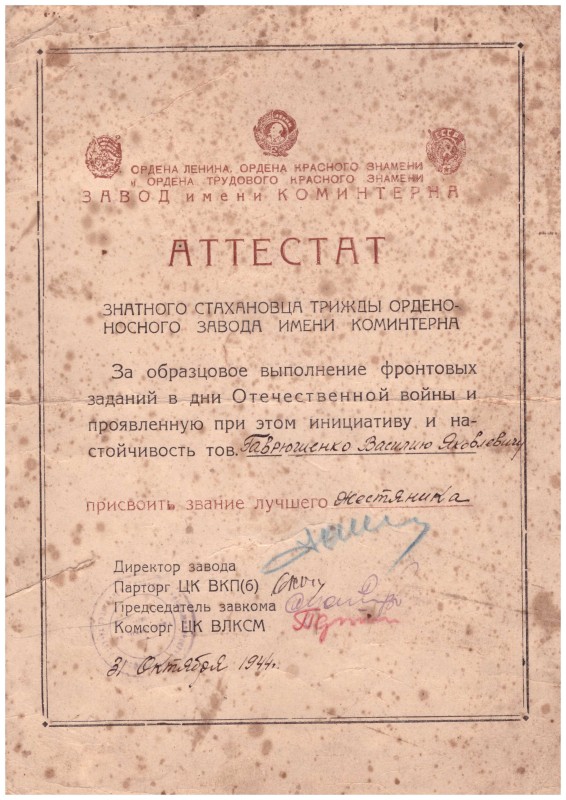 СССР
ОРДЕНА ЛЕНИНА, ОРДЕНА КРАСНОГО ЗНАМЕНИ
и ОРДЕНА ТРУДОВОГО КРАСНОГО ЗНАМЕНИ
ЗАВОД имени КОМИНТЕРНА
АТТЕСТАТ
ЗНАТНОГО СТАХАНОВЦА ТРИЖДЫ ОРДЕНО-
НОСНОГО ЗАВОДА ИМЕНИ КОМИНТЕРНА
За образцовое выполнение фронтовых
заданий в дни Отечественной войны и
проявленную при этом инициативу и на-
стойчивость тов. Гаврюшенко Василию Яковлевичу
присвоить звание лучшего жестяника
Директор завода
Парторг ЦК ВКП(б)
Председатель завкома
Комсорг ЦК ВЛКСМ
31 Октября 1944г.